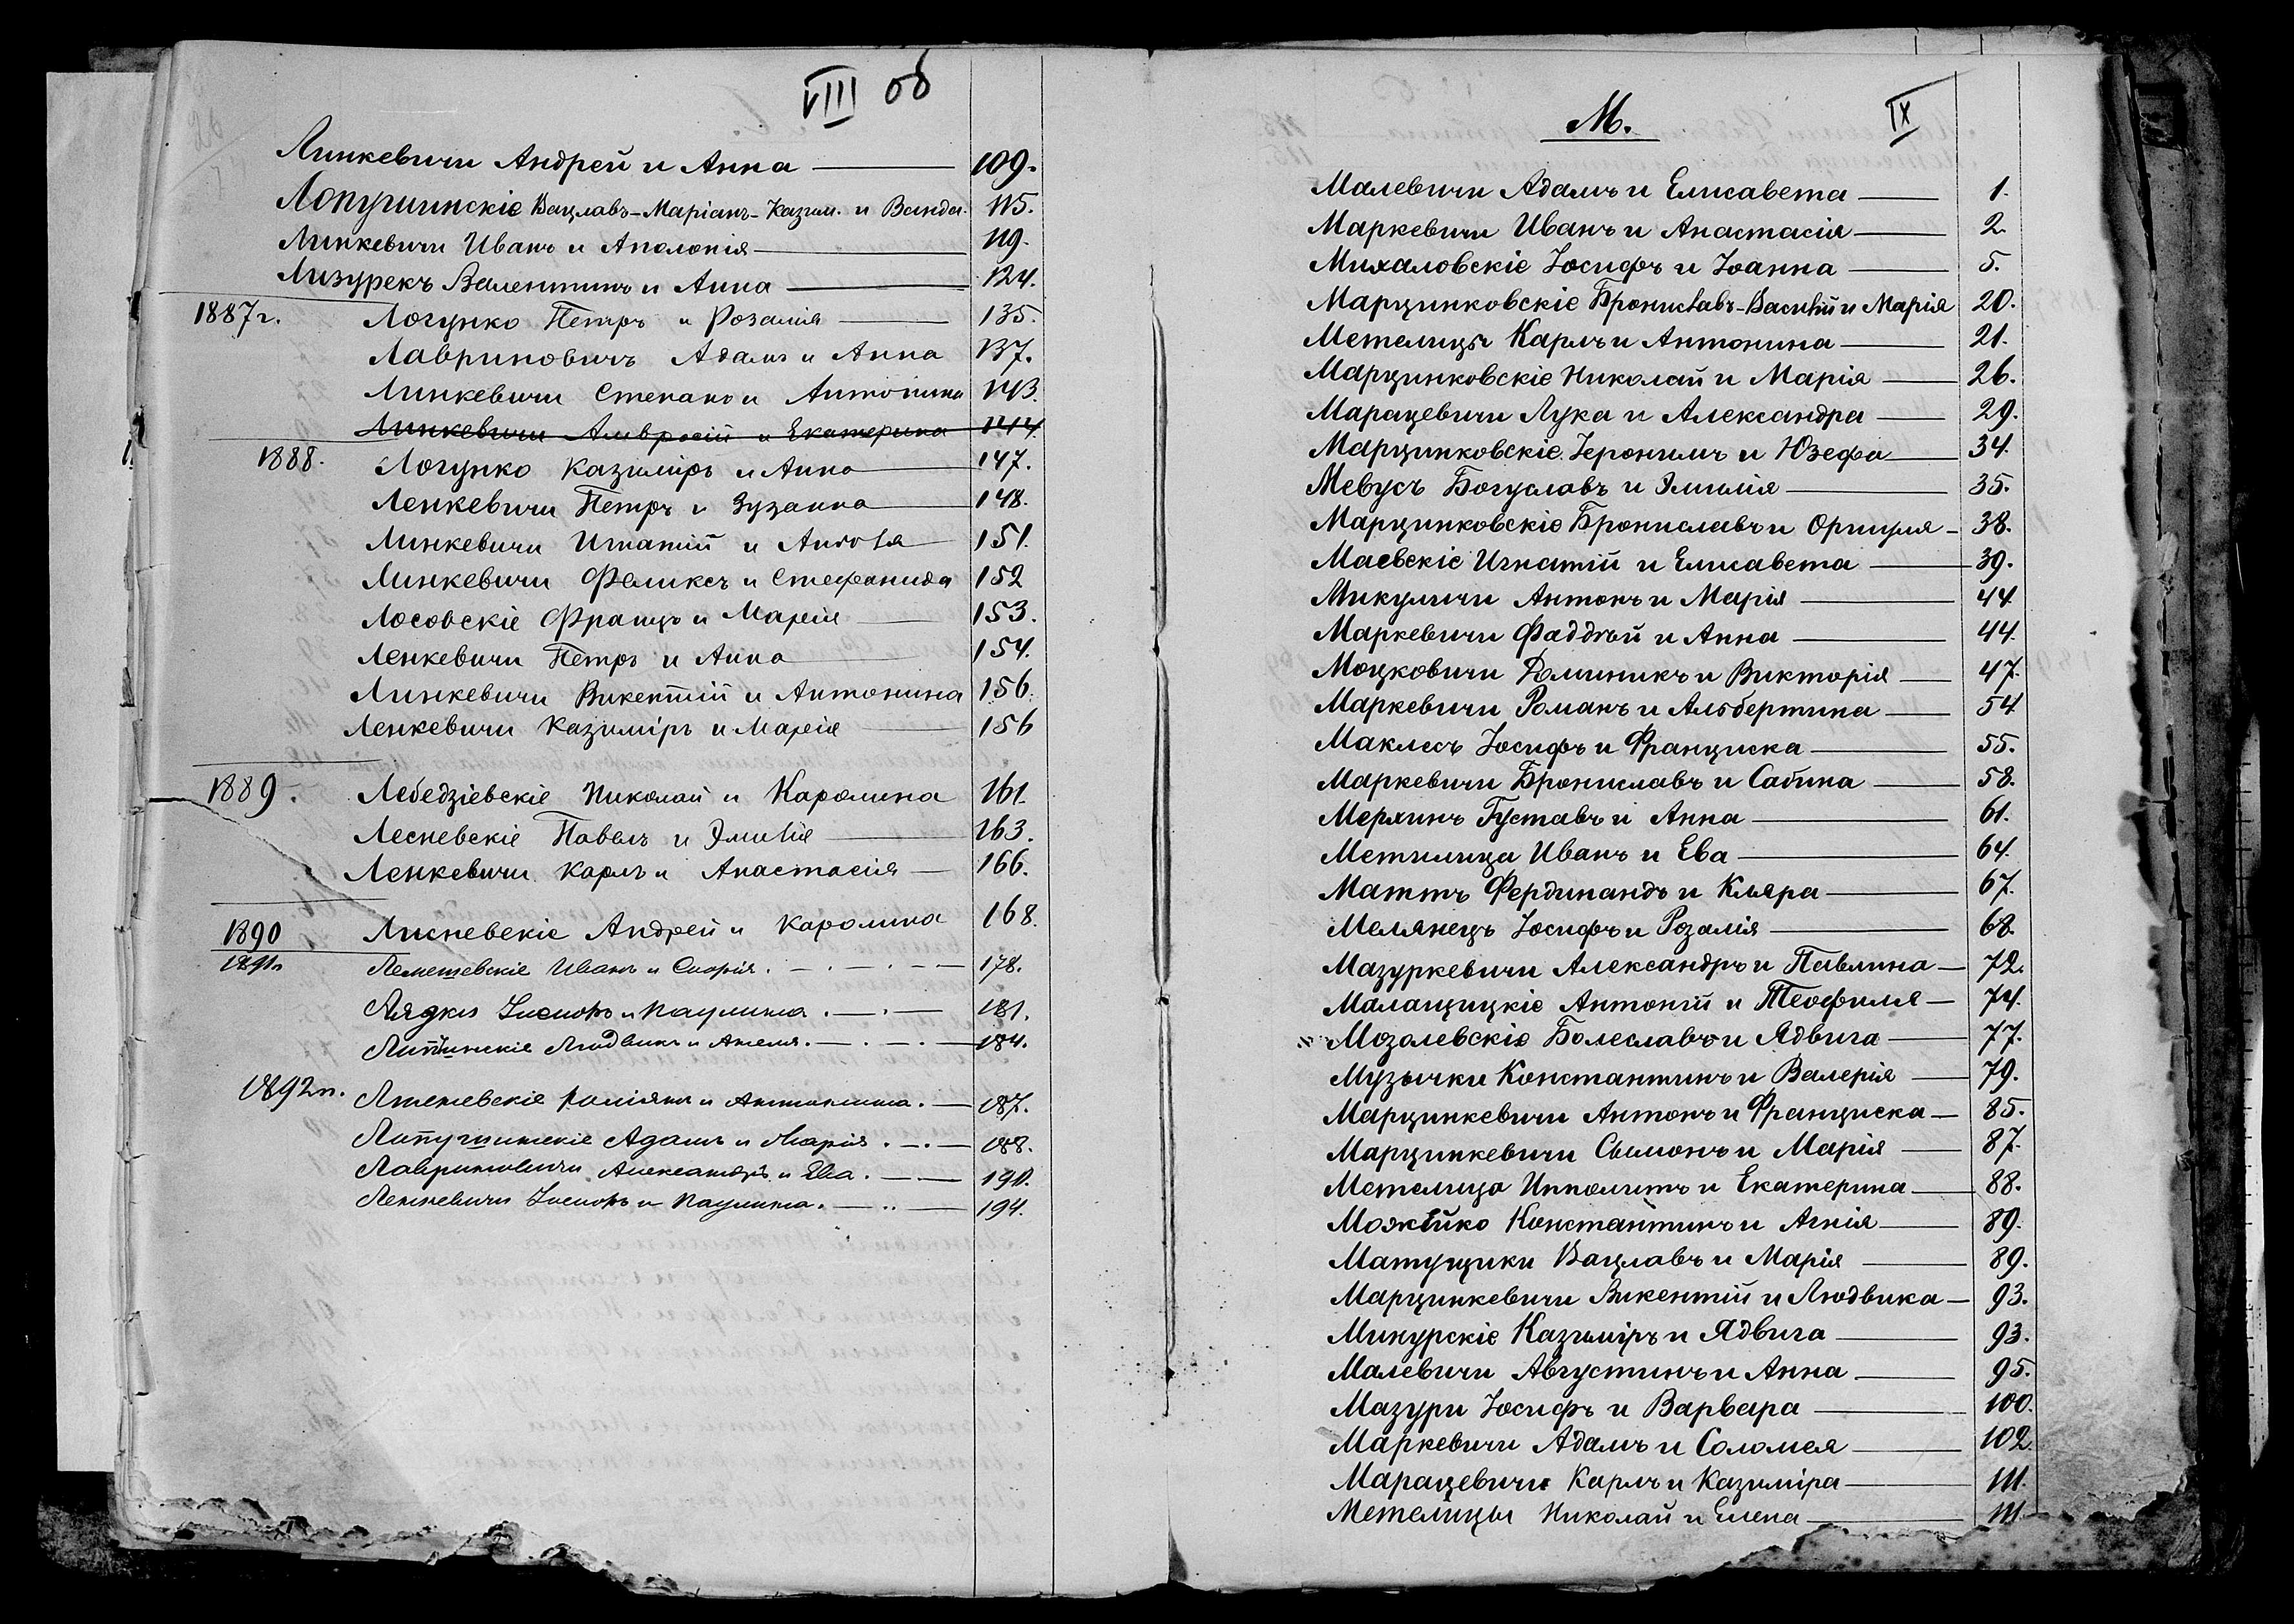 VIII об
Линкевичи Андрей и Анна 109.
Лопушинскіе Вацлавъ-Маріанъ-Казим. и Ванда. 115.
Линкевичи Иванъ и Аполонія 119.
Лизурекъ Валентинъ и Анна 124.
1887 г. Логунко Петръ и Розалія 135.
Лавриновичъ Адамъ и Анна 137.
Линкевичи Степанъ и Антонина 143.
Линкевичи Амвросій и Екатерина 144.
1888. Логунко Казиміръ и Анна 147.
Ленкевичи Петръ и Зузанна 148.
Линкевичи Игнатій и 151.
Линкевичи Феликсъ и Стефанида 152
Лосовскіе Францъ и Марія 153.
Ленкевичи Петръ и Анна 154.
Линкевичи Викентій и Антонина 156.
Ленкевичи Казиміръ и Марія 156
1889. Лебедзіевскіе Николай и Каролина 161.
Лесневскіе Павелъ и Эмилія 163.
Ленкевичи Карлъ и Анастасія 166.
1890 Лисневскіе Андрей и Каролина 168.
1891г. Лемешевскіе Иванъ и Софія. 178.
Лядки Іосифъ и Паулина. 181.
Людвикъ и Анеля. 184.
1892 г. и Антонина. 187.
Лопушинскіе Адамъ и Марія. 188.
Лавриновичи Александръ и Ева. 190.
Ленкевичи Іосифъ и Паулина. 194.
М. IX
Малевичи Адамъ и Елисавета 1.
Маркевичи Иванъ и Анастасія 2.
Михаловскіе Іосифъ и Іоанна 5.
Марцинковскіе Брониславъ-Василій и Марія 20.
Метелицы Карлъ и Антонина 21.
Марцинковскіе Николай и Марія 26.
Марацевичи Лука и Александра 29.
Марцинковскіе Іеронимъ и Юзефа 34.
Мевусъ Богуславъ и Эмилія 35.
Марцинковскіе Брониславъ и Орищля 38.
Маевскіе Игнатій и Елисавета 39.
Микуличи Антонъ и Марія 44.
Маркевичи Фаддѣй и Анна 44.
Моцковичи Доминикъ и Викторія 47.
Маркевичи Романъ и Альбертина 54
Маклесъ Іосифъ и Франциска 55.
Маркевичи Брониславъ и Сабина 58.
Мерхинъ Густавъ и Анна 61.
Метилица Иванъ и Ева 64.
Маттъ Фердинандъ и Кляра 67.
Мелянецъ Іосифъ и Розалія 68.
Мазуркевичи Александръ и Павлина 72.
Маланщицкіе Антоній и Теофилія 74.
Мозолевскіе Болеславъ и Ядвига 77.
Музычки Константинъ и Валерія 79.
Марцинкевичи Антонъ и Франциска 85.
Марцинкевичи Сымонъ и Марія 87.
Метелица Ипполитъ и Екатерина 88.
Можейко Константинъ и Агнія 89.
Матущики Вацлавъ и Марія 89.
Марцинкевичи Викентій и Людвика 93.
Микурскіе Казиміръ и Ядвига 93.
Малевичи Августинъ и Анна 95.
Мазури Іосифъ и Варвара 100.
Маркевичи Адамъ и Соломея 102.
Марацевичи Карлъ и Казиміра 111.
Метелицы Николай и Елена 111